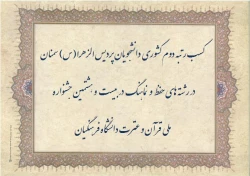 کسب رتبه دوم کشوری دانشجویان پردیس الزهرا(س) سمنان
در رشته های حفظ و تماهنگ در بیست و هشتمین جشنواره
ملی قرآن و عترت دانشگاه فرهنگیان